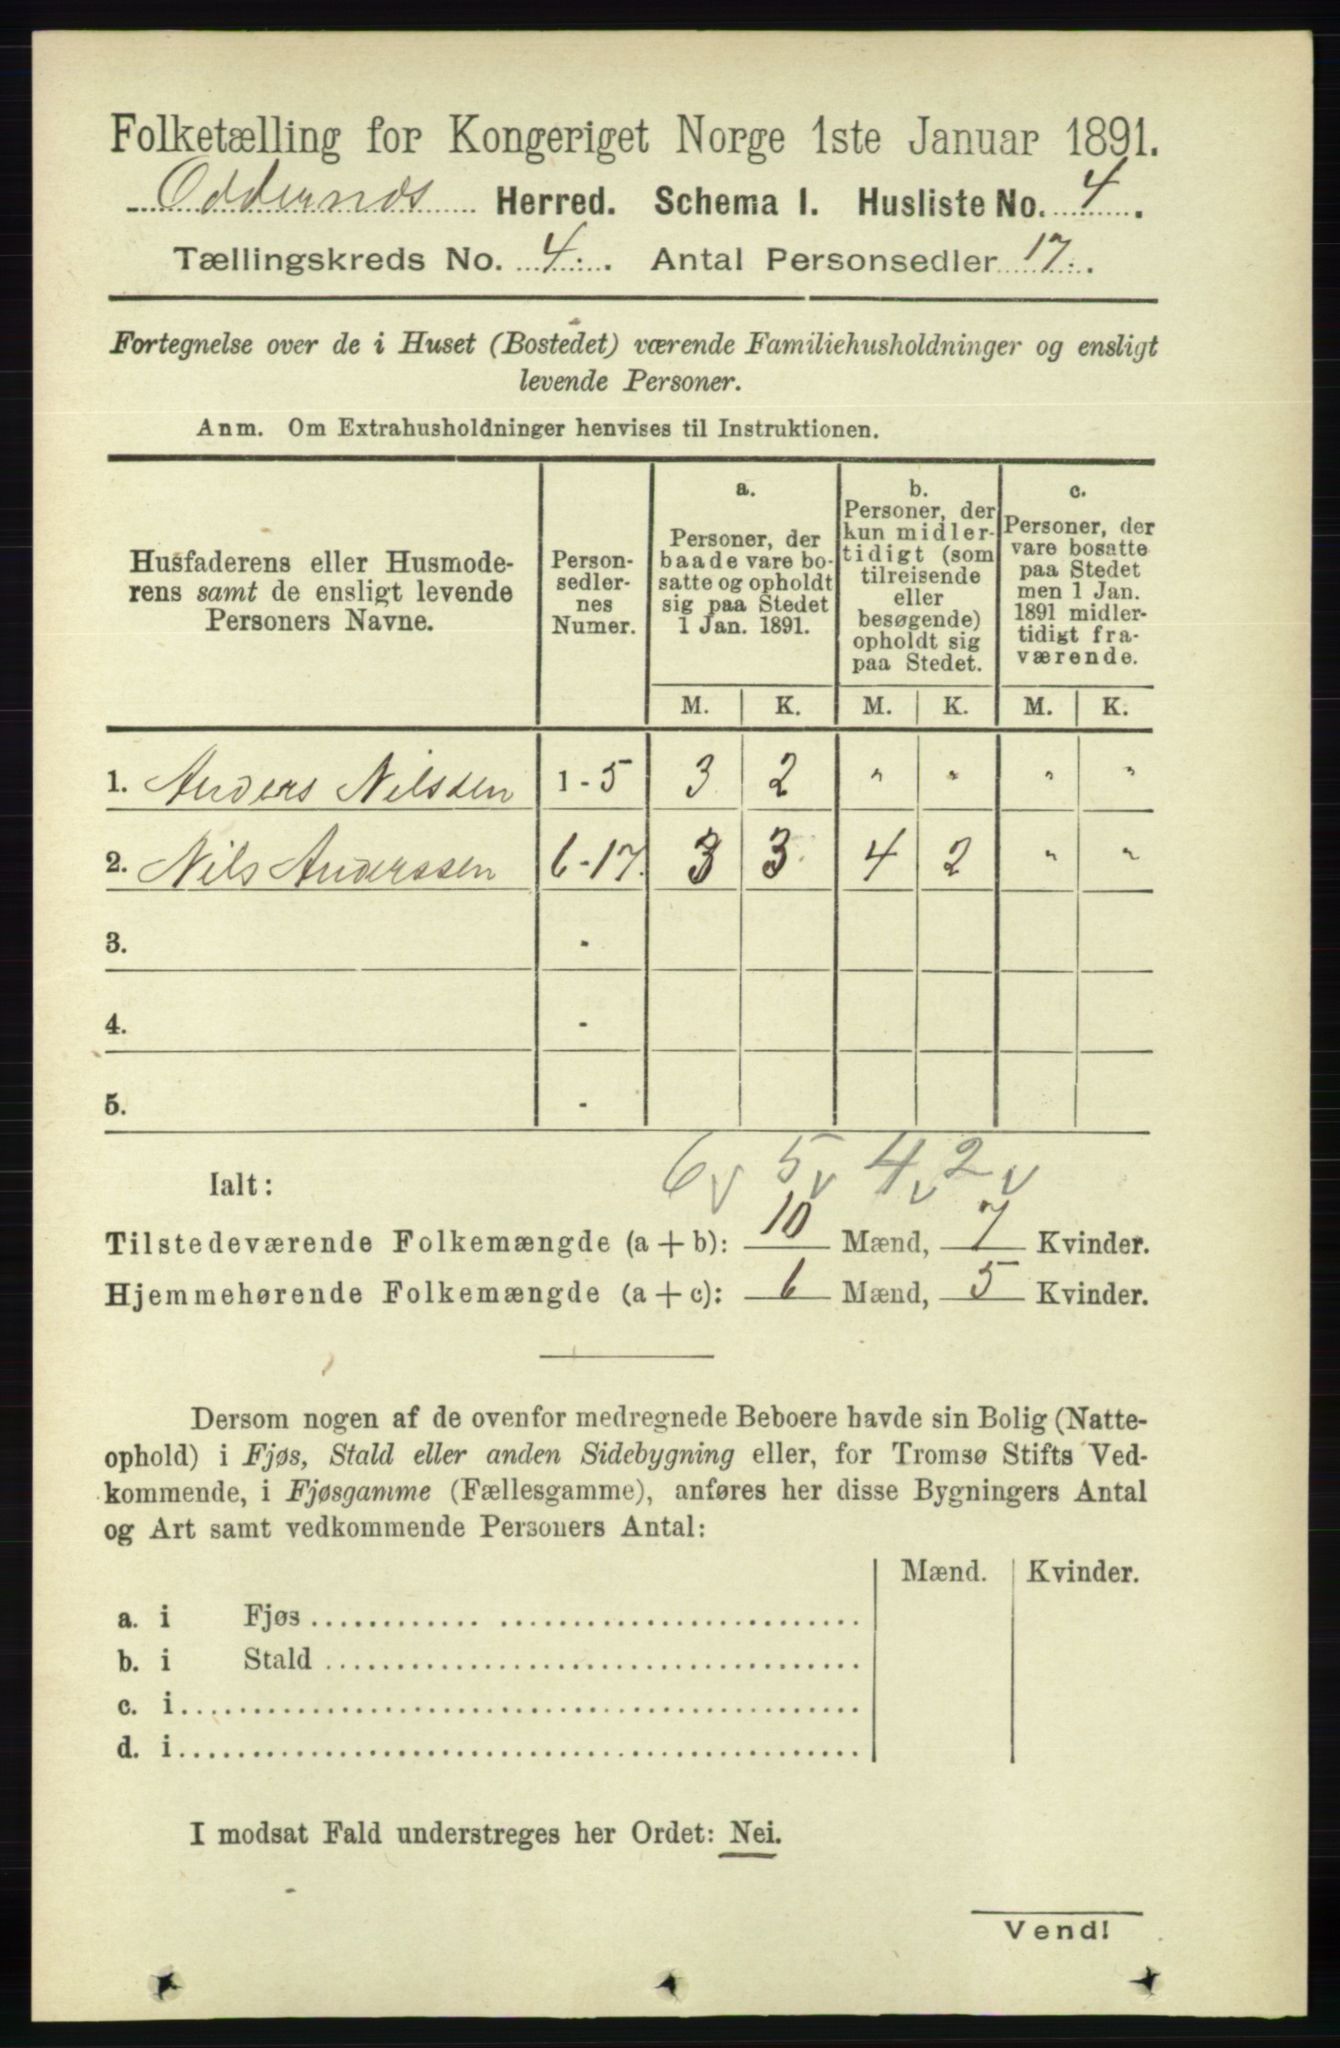 Folketælling for Kongeriget Norge 1ste Januar 1891.
Oddernes Herred. Schema I. Husliste No. 4.
Tællingskreds No. 4. Antal Personsedler 17.
Fortegnelse over de i Huset (Bostedet) værende Familiehusholdninger og ensligt
levende Personer.
Anm. Om Extrahusholdninger henvises til Instruktionen.
Husfaderens eller Husmode-
rens samt de ensligt levende
Personers Navne.
Person-
sedler-
nes
Numer.
a.
Personer, der
baade vare bo-
satte og opholdt
sig paa Stedet
1 Jan. 1891.
b.
Personer, der
kun midler-
tidigt (som
tilreisende
eller
besøgende)
opholdt sig
paa Stedet.
c.
Personer, der
vare bosatte
paa Stedet
men 1 Jan.
1891 midler-
tidigt fra-
værende.
M. K. M. K. M. K.
1. Anders Nilssen 1-5 3 2 " " " "
2. Nils Anderssen 6-17. 3 3 4 2 " "
3. -
4. -
5. -
6 v 5 v 4 v 2 v
Ialt:
Tilstedeværende Folkemængde (a + b): 10 Mænd, 7 Kvinder.
Hjemmehørende Folkemængde (a + c): 6 Mænd, 5 Kvinder.
Dersom nogen af de ovenfor medregnede Beboere havde sin Bolig (Natte-
ophold) i Fjøs, Stald eller anden Sidebygning eller, for Tromsø Stifts Ved-
kommende, i Fjøsgamme (Fællesgamme), anføres her disse Bygningers Antal
og Art samt vedkommende Personers Antal:
Mænd. Kvinder.
a. i Fjøs
b. i Stald
c. i
d. i
I modsat Fald understreges her Ordet: Nei.
Vend!